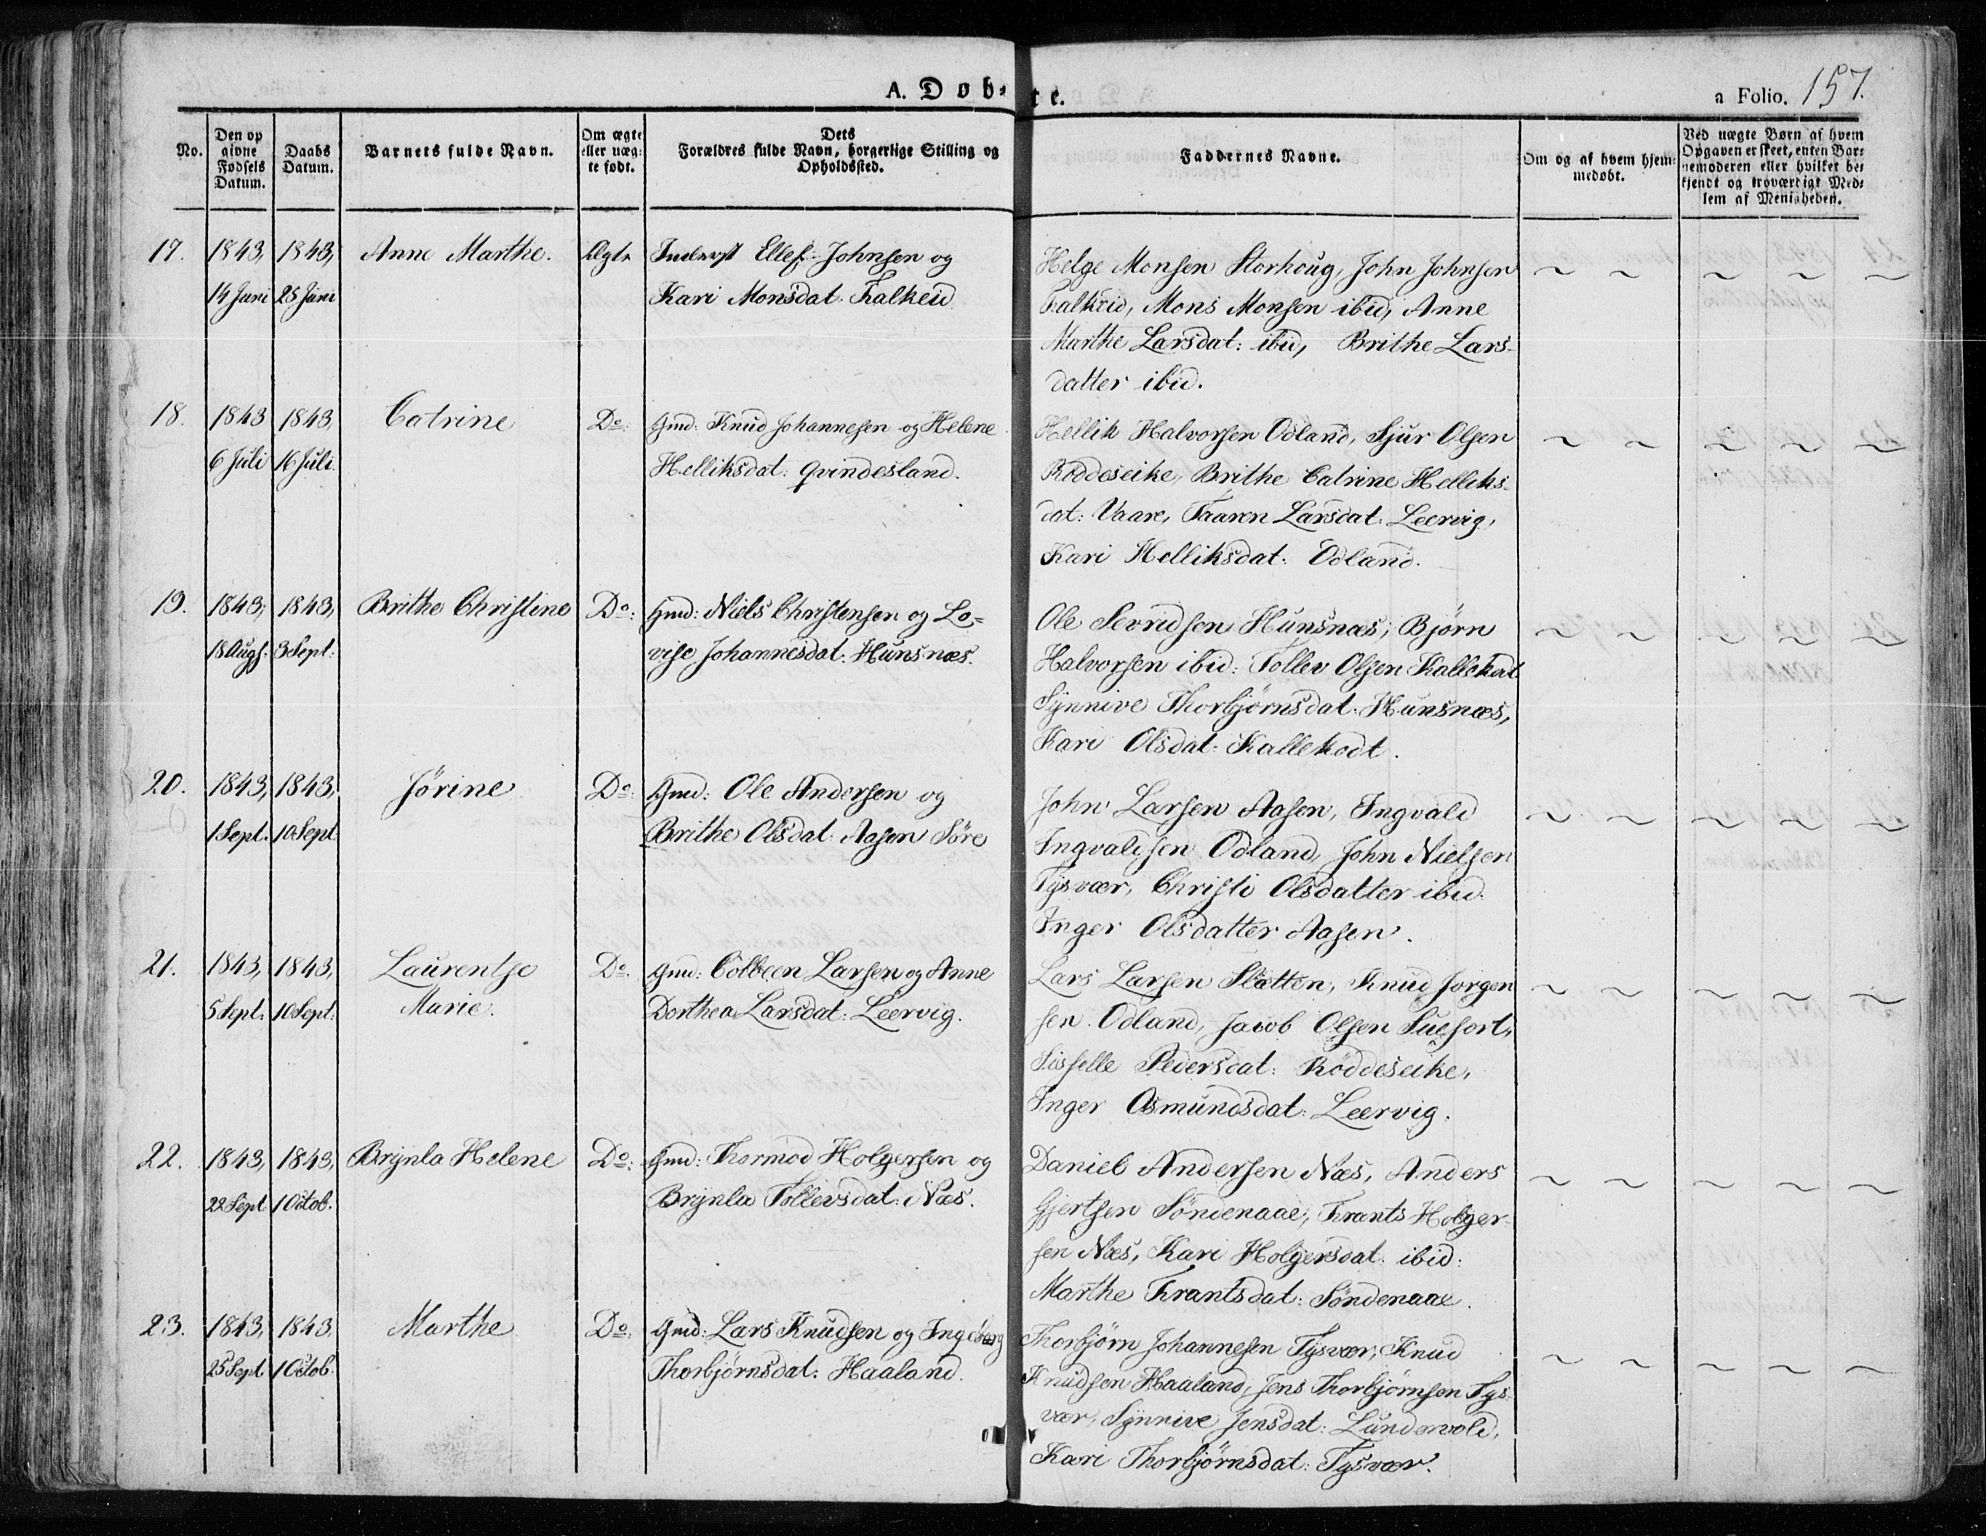 A. Døb- te.
a Folio. 157.
No.
Den op givne Fødsels Datum.
Daabs Datum.
Barnets fulde Navn.
Om ægte eller uæg- te født.
Dets Forældres fulde Navn, borgerlige Stilling og Opholdssted.
Faddernes Navne.
Om og af hvem hjem- medøbt.
Ved uægte Børn af hvem Opgaven er skeet, enten Bar- nemoderen eller hvilket be- kjendt og troværdigt Med- lem af Menigheden.
17. 1843, 1843, Anne Marthe. Ægte Inderst Ellef Johnsen og
14 Juni 25 Juni Kari Monsdat: Falkeid
Helge Monsen Storhoug, John Johnsen
Falkeid, Mons Monsen ibid, Anne
Marthe Larsdat: ibid, Brithe Lars-
datter ibid.
18. 1843 1843, Catrine Do: Gmd: Knud Johannesen og Helene
6 Juli 16 Juli. Helliksdat: Qvindesland.
Hellik Halvorsen Odland, Sjur Olsen
Røddeseike, Brithe Catrine Helliks-
dat: Vaare, Taaren Larsdat: Leervig,
Kari Helliksdat: Odland.
19. 1843, 1843, Brithe Christine Do: Gmd: Niels Christensen og Lo-
18 Augs. 3 Sept: vise Johannesdat: Hunsnæs.
Ole Sevridsen Hunsnæs, Bjørn
Halvorsen ibid: Tollev Olsen Kallekodt
Synnive Thorbjørnsdat: Hunsnæs,
Kari Olsdat: Kallekodt.
20. 1843, 1843, Jørine Do: Gmd: Ole Andersen og
1 Sept. 10 Sept Brithe Olsdat: Aasen Søre
John Larsen Aasen, Ingvald
Ingvaldsen Odland, John Nielsen
Tysvær, Christi Olsdatter ibid.
Inger Olsdatter Aasen.
21. 1843, 1843, Laurentse Do: Gmd: Colbeen Larsen og Anne
5 Sept: 10 Sept: Marie. Dorthea Larsdat: Leervig.
Lars Larsen Slatten, Knud Jorgen
sen Odland, Jacob Olsen Suefort,
Sisselle Pedersdat: Røddeseike,
Inger Osmundsdat: Leervig.
22. 1843, 1843, Brynla Helene Do: Gmd: Thormod Holgersen og
22 Sept 1 Octob. Brynla Tollevsdat: Næs.
Daniel Andersen Næs, Anders
Gjertsen Søndenaae, Frants Holger-
sen Næs, Kari Holgersdat: ibid:
Marthe Frantsdat: Søndenaae.
23. 1843, 1843 Marthe Do: Gmd: Lars Knudsen og Ingeborg
25 Sept 1 Octob. Thorbjørnsdat: Haaland.
Thorbjørn Johannesen Tysvær, Knud
Knudsen Haaland, Jens Thorbjørnsen Tys-
vær, Synnive Jensdat: Lundervold,
Kari Thorbjørnsdat: Tysvær.